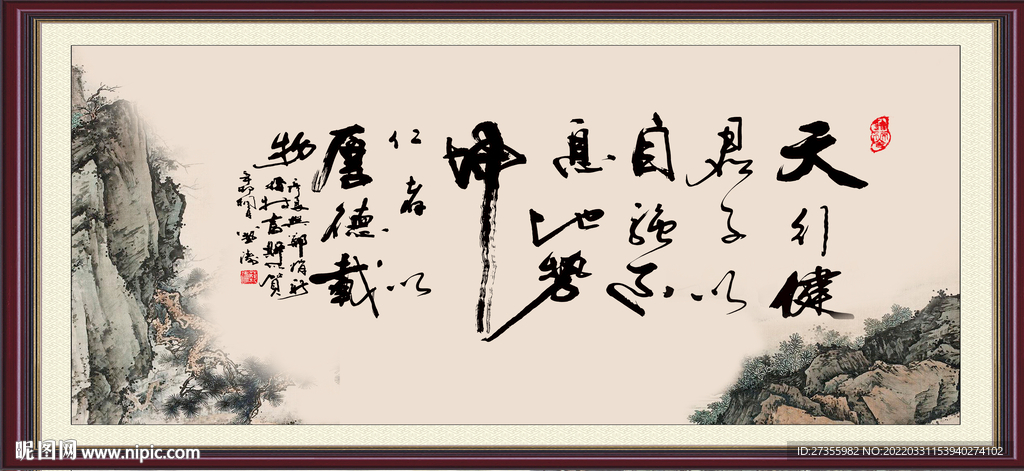 天行健
君子以
自强不
息地势
坤
仁者以
厚德载
物
昵图网 www.nipic.com
ID:27355982 NO:20220331153940274102